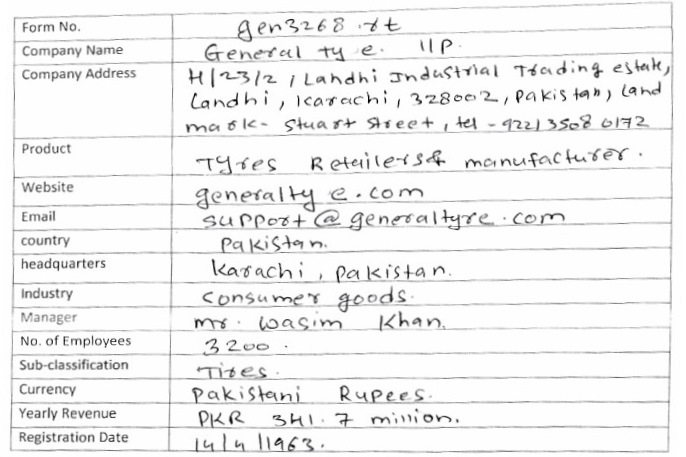 Form No. gen3268.rt
Company Name General ty e. llp.
Company Address H/23/2, Landhi Industrial Trading estate,
Landhi, karachi, 328002, Pakistan, Land
mark- Stuart Street, tel - 9221 3508 0172
Product Tyres Retailers & manufacturer.
Website generalty e.com
Email support@generaltyre.com
country Pakistan.
headquarters Karachi, Pakistan.
Industry Consumer goods.
Manager mr. Wasim Khan.
No. of Employees 3200.
Sub-classification Tires.
Currency Pakistani Rupees.
Yearly Revenue PKR 341.7 million.
Registration Date 14/4/1963.